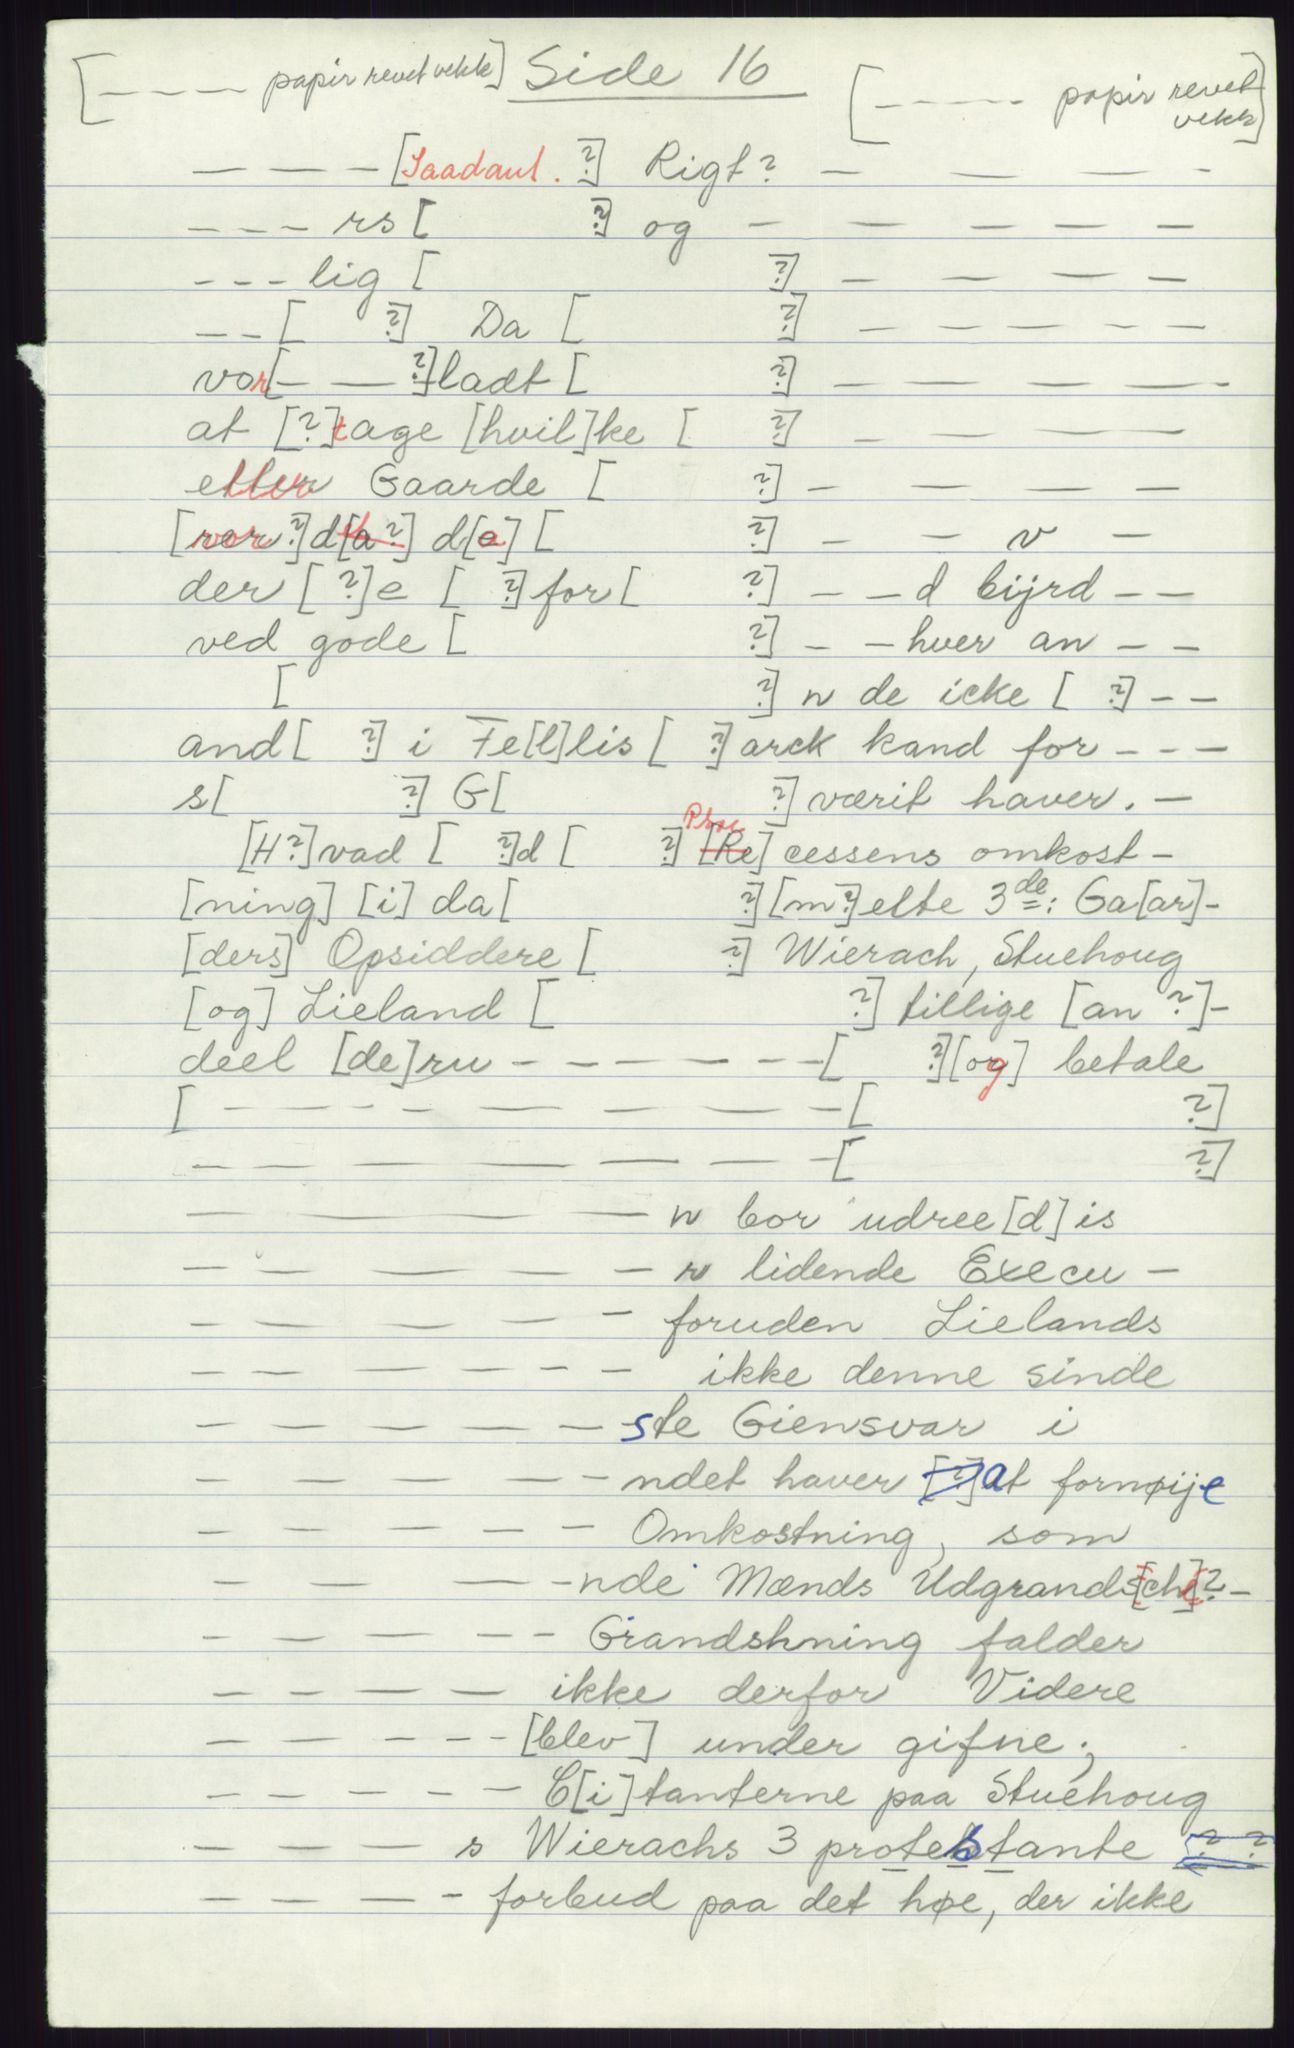 [---- papir revet vekk] Side 16 [----- papir revet vekk]
— — — [Saadant. ?] Rigt? — — — -
- - - rs [ ?] og — — — — —
- - - lig [ ?] — — — —
- - [ ?] Da [ ?] — — — — —
vor[— — ?]ladt [ ?] — — — — -
at [?]tage [hvil]ke [ ?] — — — —
eller Gaarde [ ?] — — — —
[vor ?]d[a ?] d[e] [ ?] — — v —
der [ ?]e [ ?] for [ ?] — — d bijrd — —
ved gode [ ?] — — hver an — —
[ ?] n de icke [ ?] — —
and [ ?] i Fe[l]lis [ ?] arck kand for - - -
s[ ?] G[ ?] værit haver. —
[H?]vad [ ?]d [ ?] [Re] cessens omkost-
[ning] [i] da[ ?] [m?]elte 3de: Ga[ar]-
[ders] Opsiddere [ ?] Wierach, Stuehoug
[og] Lieland [ ?] tillige [an ?]-
deel [de]ru — — — — — — [ ?] [og] betale
[ — — — — — — — — [ ?]
— — — — — — — — [ ?]
— — — — — n bor udree[d]is
— — — — — — r lidende Execu —
— — — — — — foruden Lielands
— — — — — — — ikke denne sinde
— — — — — — ste Giensvar i
— — — — — — ndet haver [?] at fornøije
— — — — — — Omkostning, som
— — — — -nde Mænds Udgrands[che]?-
— — — — — — Grandshning falder
— — — — — ikke derfor Videre
— — — — — — [blev] under gifne;
— — — — — — C[i]tanterne paa Stuehoug
— — — — s Wierachs 3 protestante ? ?
— — — — — forbud paa det høe, der ikke